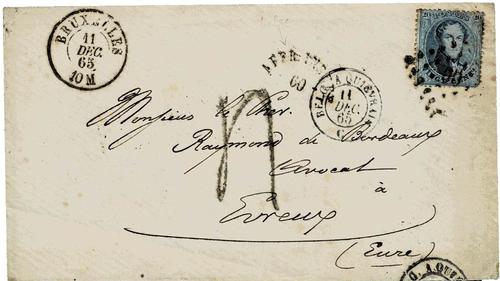 BRUXELLES
11
DEC.
65
10 M
60
BELG. A QUIEVRAIN
11
DEC.
65
Monsieur le Cher.
Raymond de Bordeaux
Avocat
à
Evreux
(Eure)